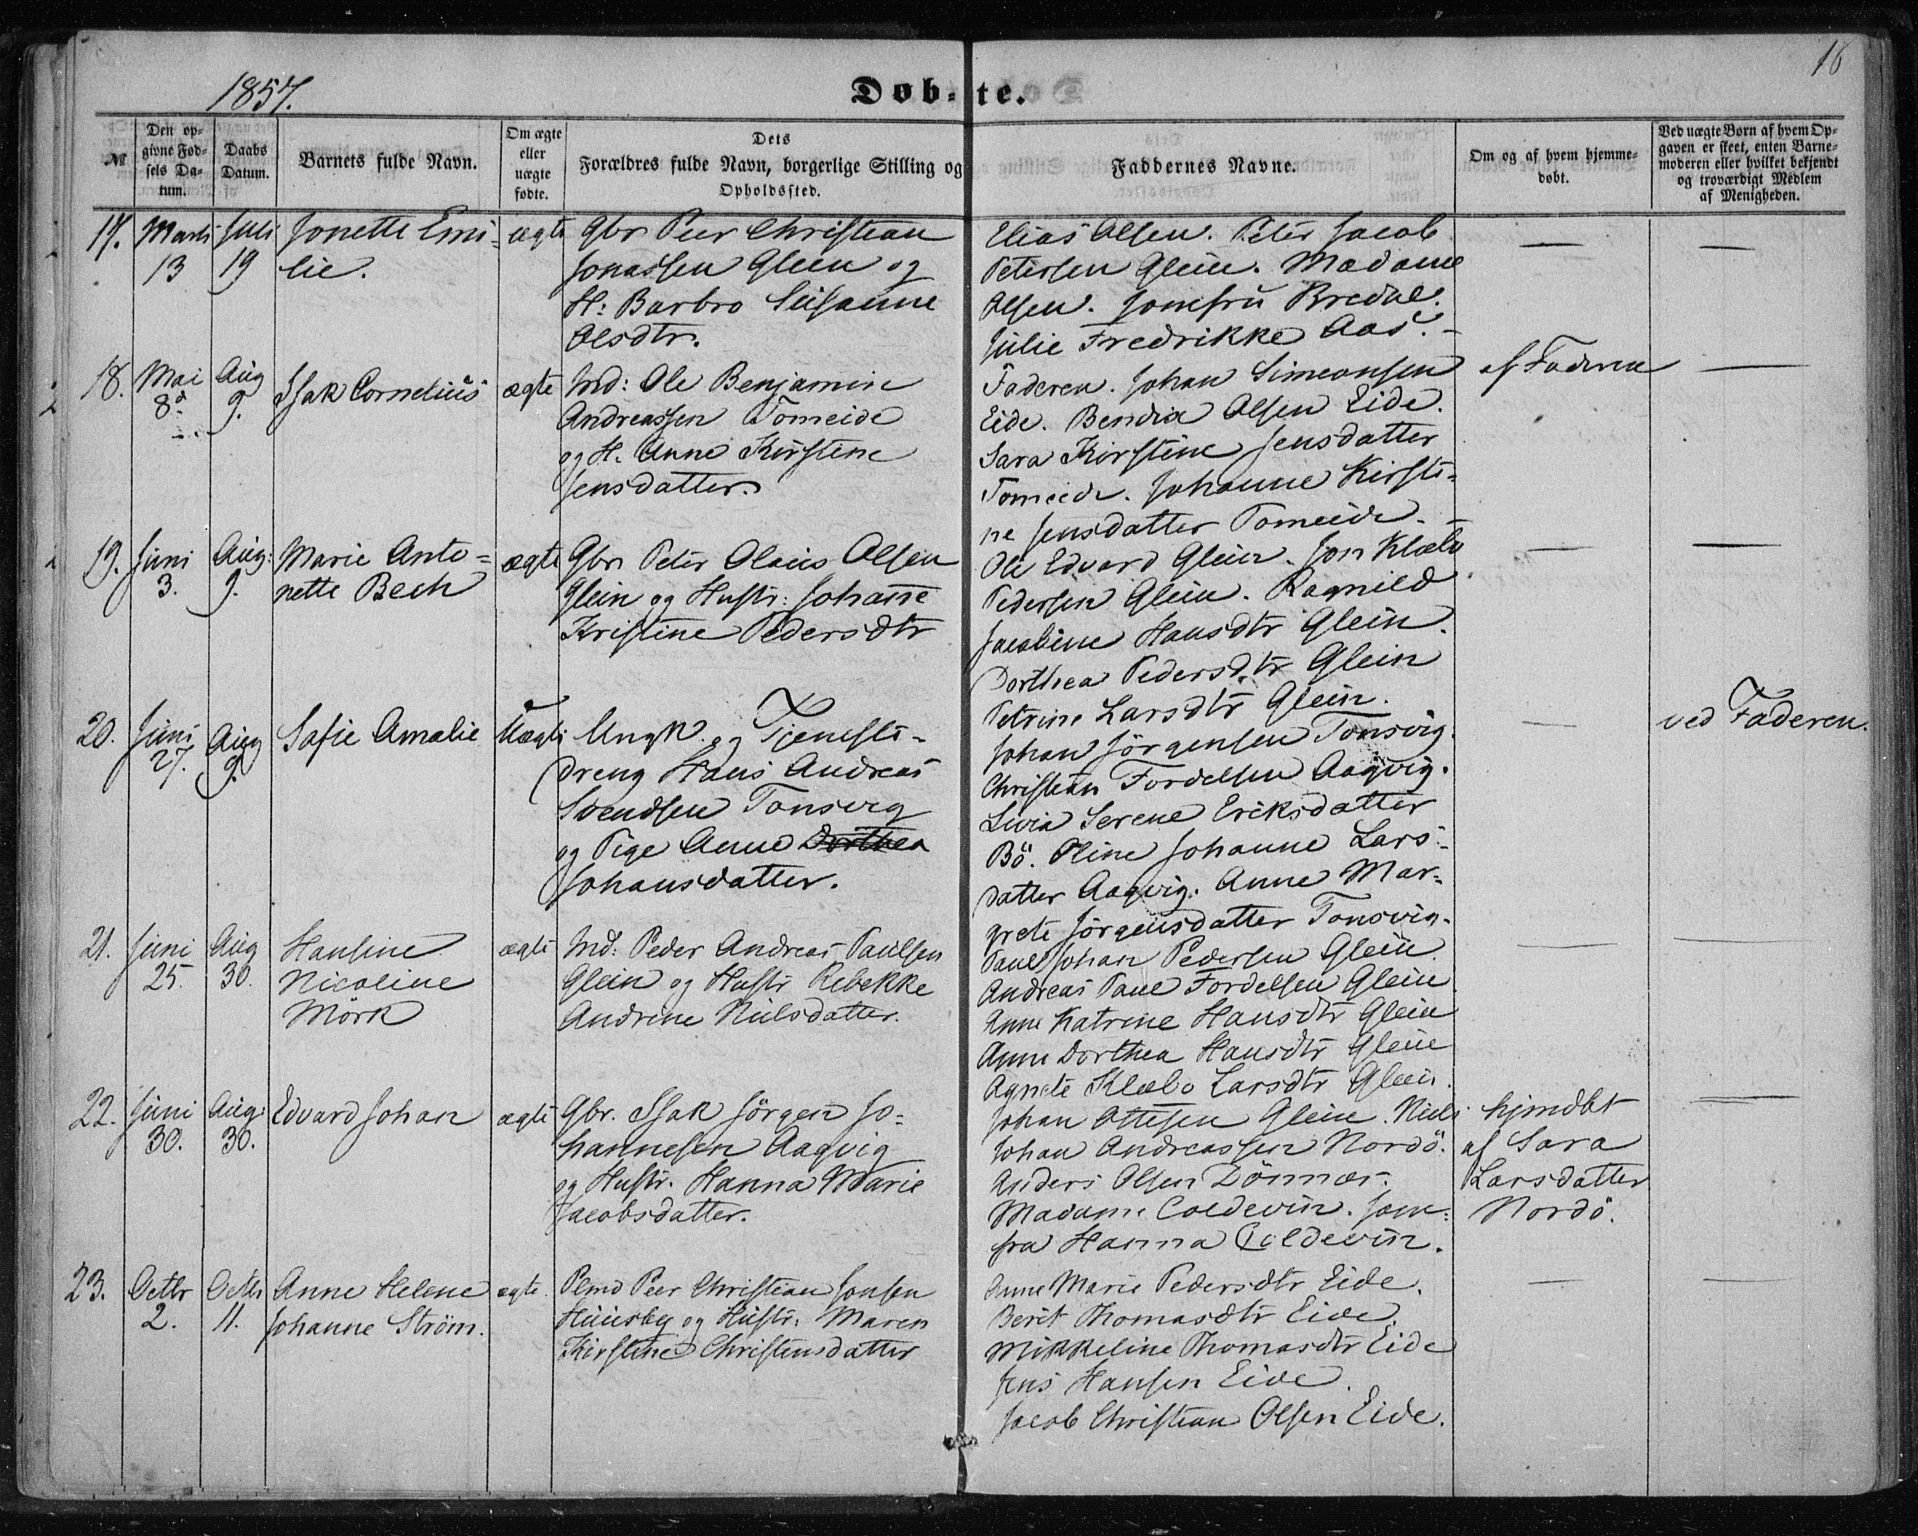 16
1857.
Døb-te.
№
Den opgivne Fødsels Datum.
Daabs Datum.
Barnets fulde Navn.
Om ægte eller uægte fødte.
Dets Forældres fulde Navn, borgerlige Stilling og Opholdssted.
Faddernes Navne.
Om og af hvem hjemmedøbt.
Ved uægte Børn af hvem Opgaven er skeet, enten Barnemoderen eller hvilket bekjendt og troværdigt Medlem af Menigheden.
17. Marts 13 Juli 19
Jonette Emi-
lie.
ægte
Gbr Peer Christian
Jonassen Glein og
H: Barbro Susanne
Olsdtr.
Elias Olsen. Peter Jacob
Petersen Glein. Madame
Olsen. Jomfru Bredal.
Julie Fredrikke Aas. -
—
—
18. Mai 8de Aug 9.
Isak Cornelius
ægte
Ind: Ole Benjamin
Andreassen Tomeide
og H. Anne Kirstine
Jensdatter.
Faderen. Johan Simeonsen
Eide. Bendix Olsen Eide.
Sara Kirstine Jensdatter
Tomeide. Johanne Kirsti-
ne Jensdatter Tomeide. -
af Faderen
—
19. Juni 3. Aug: 9.
Marie Anto-
nette Bech
ægte
Gbr Peter Olaus Olsen
Glein og Hustr: Johanne
Kristine Pedersdtr
Ole Edvard Glein. Jon Klæbo
Pedersen Glein. Ragnild
Jacobine Hansdtr Glein.
Dorthea Pedersdtr Glein
Petrine Larsdtr Glein.
—
—
20. Juni 27. Aug 9.
Safie Amalie
Uægte
Ungk. og Tjeneste-
dreng Hans Andreas
Svendsen Tonsvig
og Pige Anne Dorthea
Johansdatter.
Johan Jörgensen Tonsvig.
Christian Fordelsen Aagvig.
Livia Serene Eriksdatter
Bö. Oline Johanne Lars-
datter Aagvig. Anne Mar-
grete Jörgensdatter Tonsvig.
—
ved Faderen.
21. Juni 25. Aug 30.
Hansine
Nicoline
Mörk
ægte
Ind: Peder Andreas Paulsen
Glein og Hustr Rebekke
Andrine Nielsdatter.
Paul Johan Pedersen Glein.
Andreas Paul Fordelsen Glein
Anne Katrine Hansdtr Glein
Anne Dorthea Hansdtr Glein
Agnete Klæbo Larsdtr Glein.
—
—
22. Juni 30. Aug: 30.
Edvard Johan
ægte
Gbr. Isak Jörgen Jo-
hannesen Aagvig
og Hustr. Hanna Marie
Jacobsdatter.
Johan Ottesen Glein. Niels
Johan Andreassen Nordö.
Anders Olsen Dönnæs.
Madame Coldevin. Jom-
fru Hanna Coldevin.
hjmdbt
af Sara
Larsdatter
Nordö.
—
23. Octbr 2. Octbr 11.
Anne Helene
Johanne Ström.
ægte.
Plmd Peer Christian Jonsen
Huusby og Hustr. Maren
Kirstine Christensdatter
Anne Marie Pedersdtr Eide.
Berit Thomasdtr Eide.
Mikkeline Thomasdtr Eide
Jens Hansen Eide.
Jacob Christian Olsen Eide.
—
—